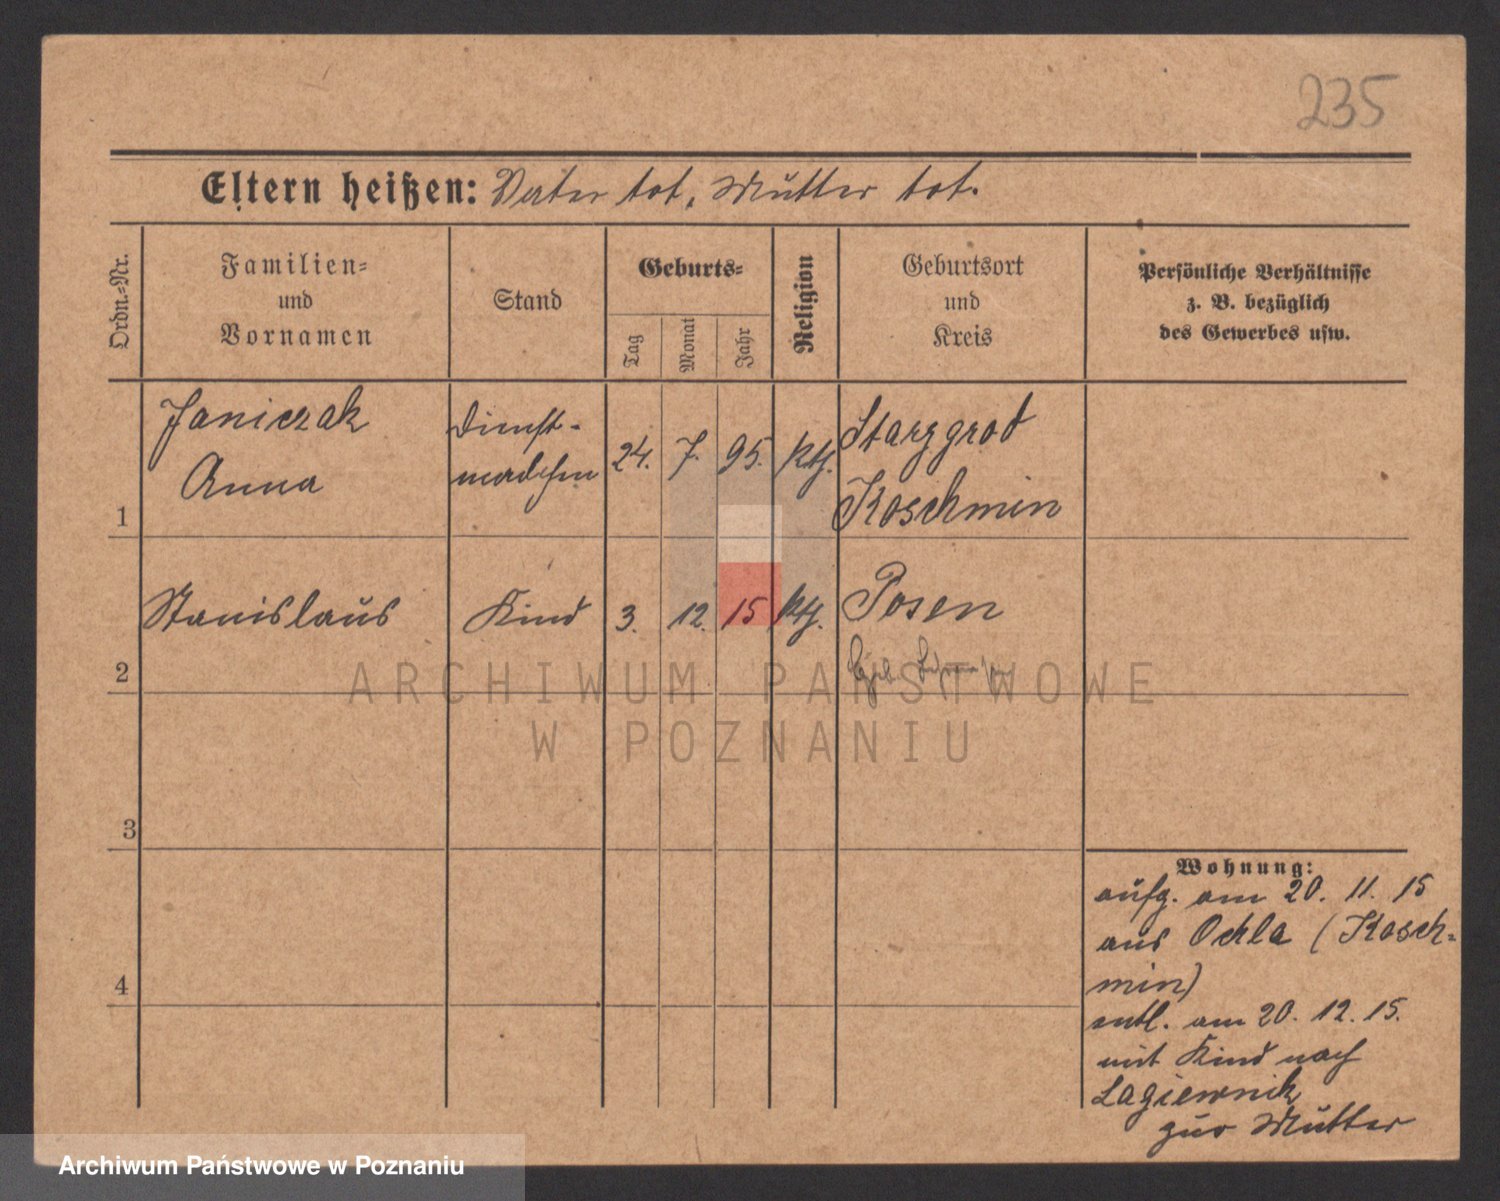 235
Eltern heißen: Vater tot, Mutter tot.
Ordn.-Nr.
Familien- und Vornamen
Stand
Geburts-
Tag
Monat
Jahr
Religion
Geburtsort und Kreis
Persönliche Verhältnisse
z. B. bezüglich
des Gewerbes usw.
1
Janiczak
Anna
Dienst-
mädchen
24. 7. 95. kth.
Starggrod
Koschmin
2
Stanislaus
Kind
3. 12. 15 kth.
Posen
3
4
Wohnung:
aufg. am 20. 11. 15
aus Ochla (Kosch-
min)
entl. am 20. 12. 15.
mit Kind nach
Lagiewnik
zur Mutter
ARCHIWUM PAŃSTWOWE
W POZNANIU
Archiwum Państwowe w Poznaniu